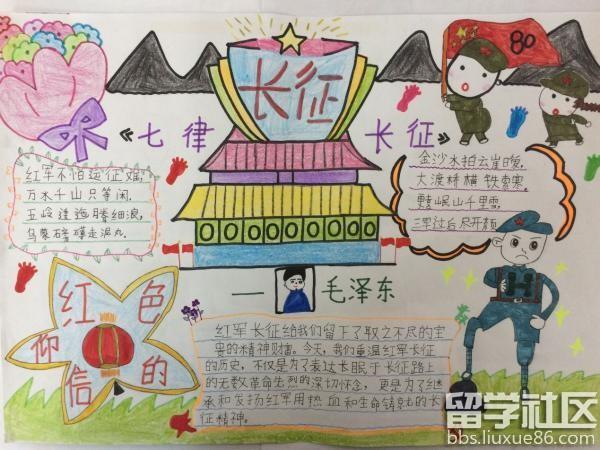 长征
80
《七律 长征》
红军不怕远征难,
万水千山只等闲,
五岭逶迤腾细浪,
乌蒙磅礴走泥丸。
金沙水拍云崖暖,
大渡桥横铁索寒。
更喜岷山千里雪,
三军过后尽开颜
—— 毛泽东
红色
的
信仰
红军长征给我们留下了取之不尽的宝
贵的精神财富。今天,我们重温红军长征
的历史,不仅是为了表达长眠于长征路上
的无数革命先烈的深切怀念,更是为了继
承和发扬红军用热血和生命铸就的长
征精神。
留学社区
bbs.liuxue86.com